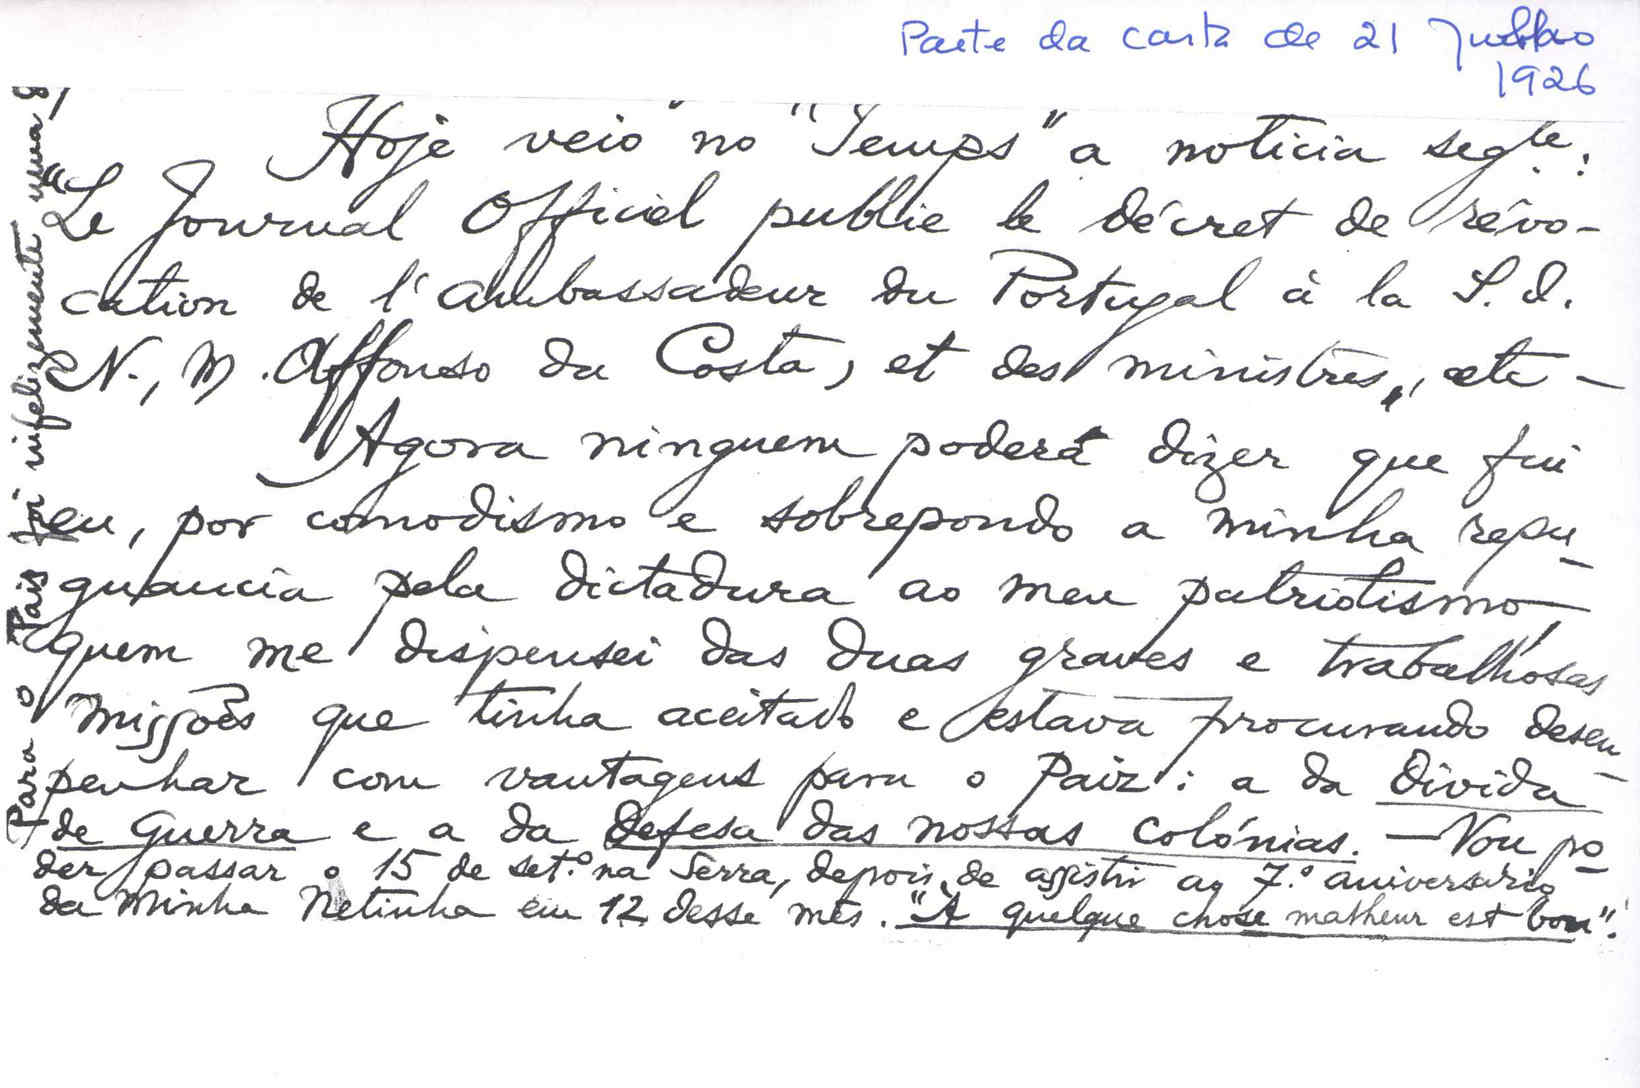 Parte da carta de 21 Julho
1926
Hoje veio no "Temps" a noticia segte:
"Le Journal Officiel publie le décret de révo-
cation de l'ambassadeur du Portugal à la S. d.
N., M. Affonso da Costa, et des ministres", etc –
Agora ninguem poderá dizer que fui
eu, por comodismo e sobrepondo a minha repu-
gnancia pela dictadura ao meu patriotismo,
quem me dispensei das duas graves e trabalhosas
missões que tinha aceitado e estava procurando desem-
penhar com vantagens para o Paiz: a da Divida
de Guerra e a da Defesa das nossas colónias. – Vou po-
der passar o 15 de set.º na Serra, depois de assistir ao 7.º aniversario
da minha Netinha em 12 desse mês. "A quelque chose malheur est bon".
Para o Pais foi infelizmente uma